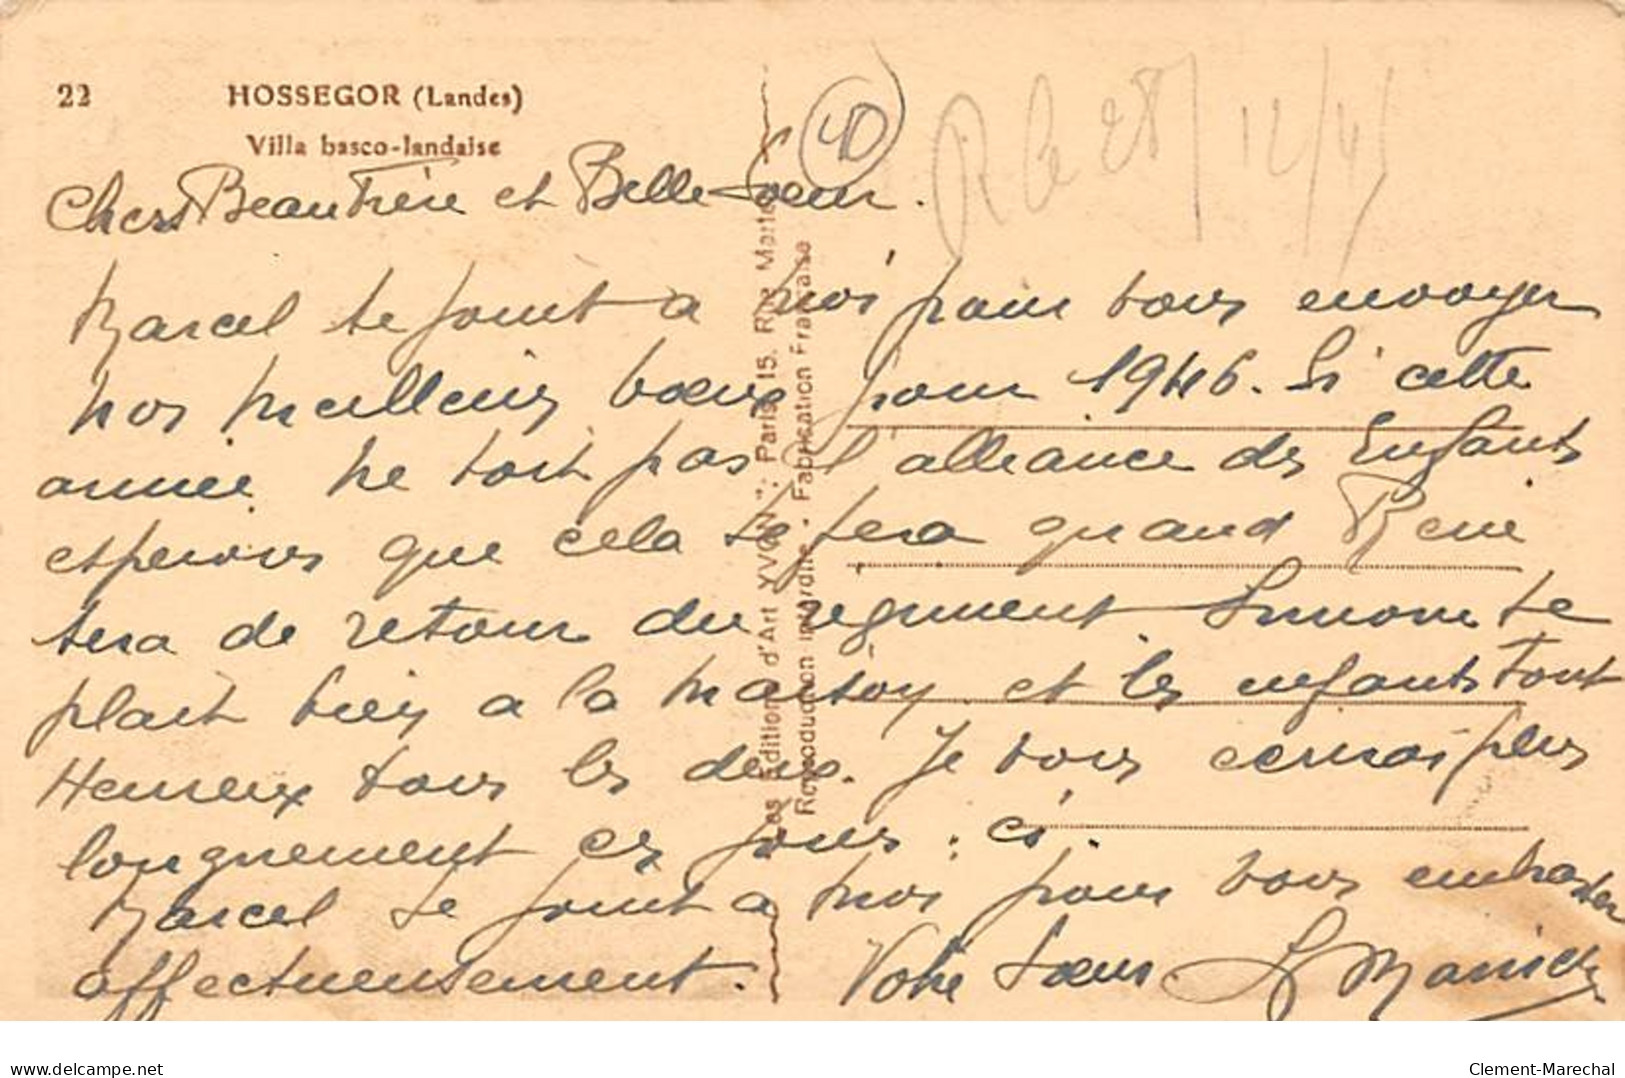 22 HOSSEGOR (Landes)
Villa basco-landaise
40
R le 28/12/45
Chers Beau Frère et Belle Sœur.
Marcel se joint a moi pour vous envoyer
nos meilleurs vœux pour 1946. Si cette
année ne voit pas l'alliance des Enfants
esperons que cela se fera quand René
sera de retour du regiment Simone se
plait bien a la maison et les enfants sont
Heureux tous les deux. Je vous ecrirai plus
longuement ces jours: ci.
Marcel se joint a moi pour vous embrasser
affectueusement.
Votre Sœur
Les Editions d'Art "YVON": Paris, 15, Rue Martel
Reproduction interdite. Fabrication Française
delcampe.net
Clement-Marechal